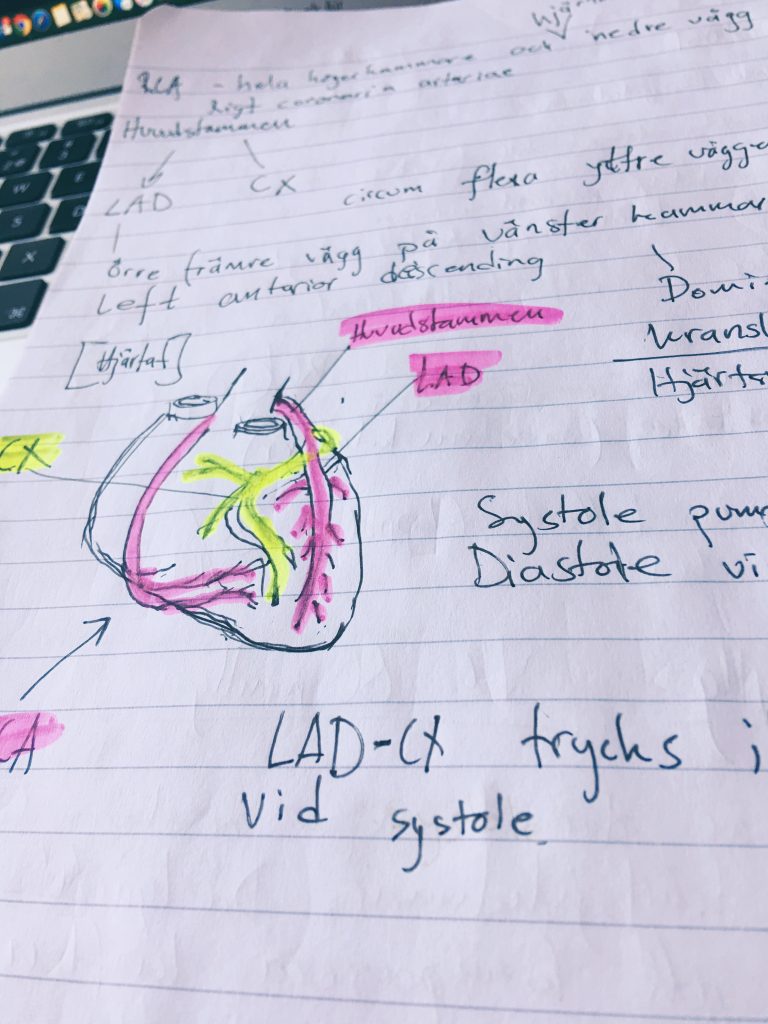 RCA - hela höger kammare och nedre vägg
Rigt coronaria arteriae
Huvudstammen
LAD
CX
circum flexa yttre vägge
övre främre vägg på vänster kammar
Left anterior descending
Domi
kransl
Hjärts
[Hjärtat]
Huvudstammen
LAD
CX
Systole pum
Diastole vi
CA
LAD-CX trycks i
vid systole